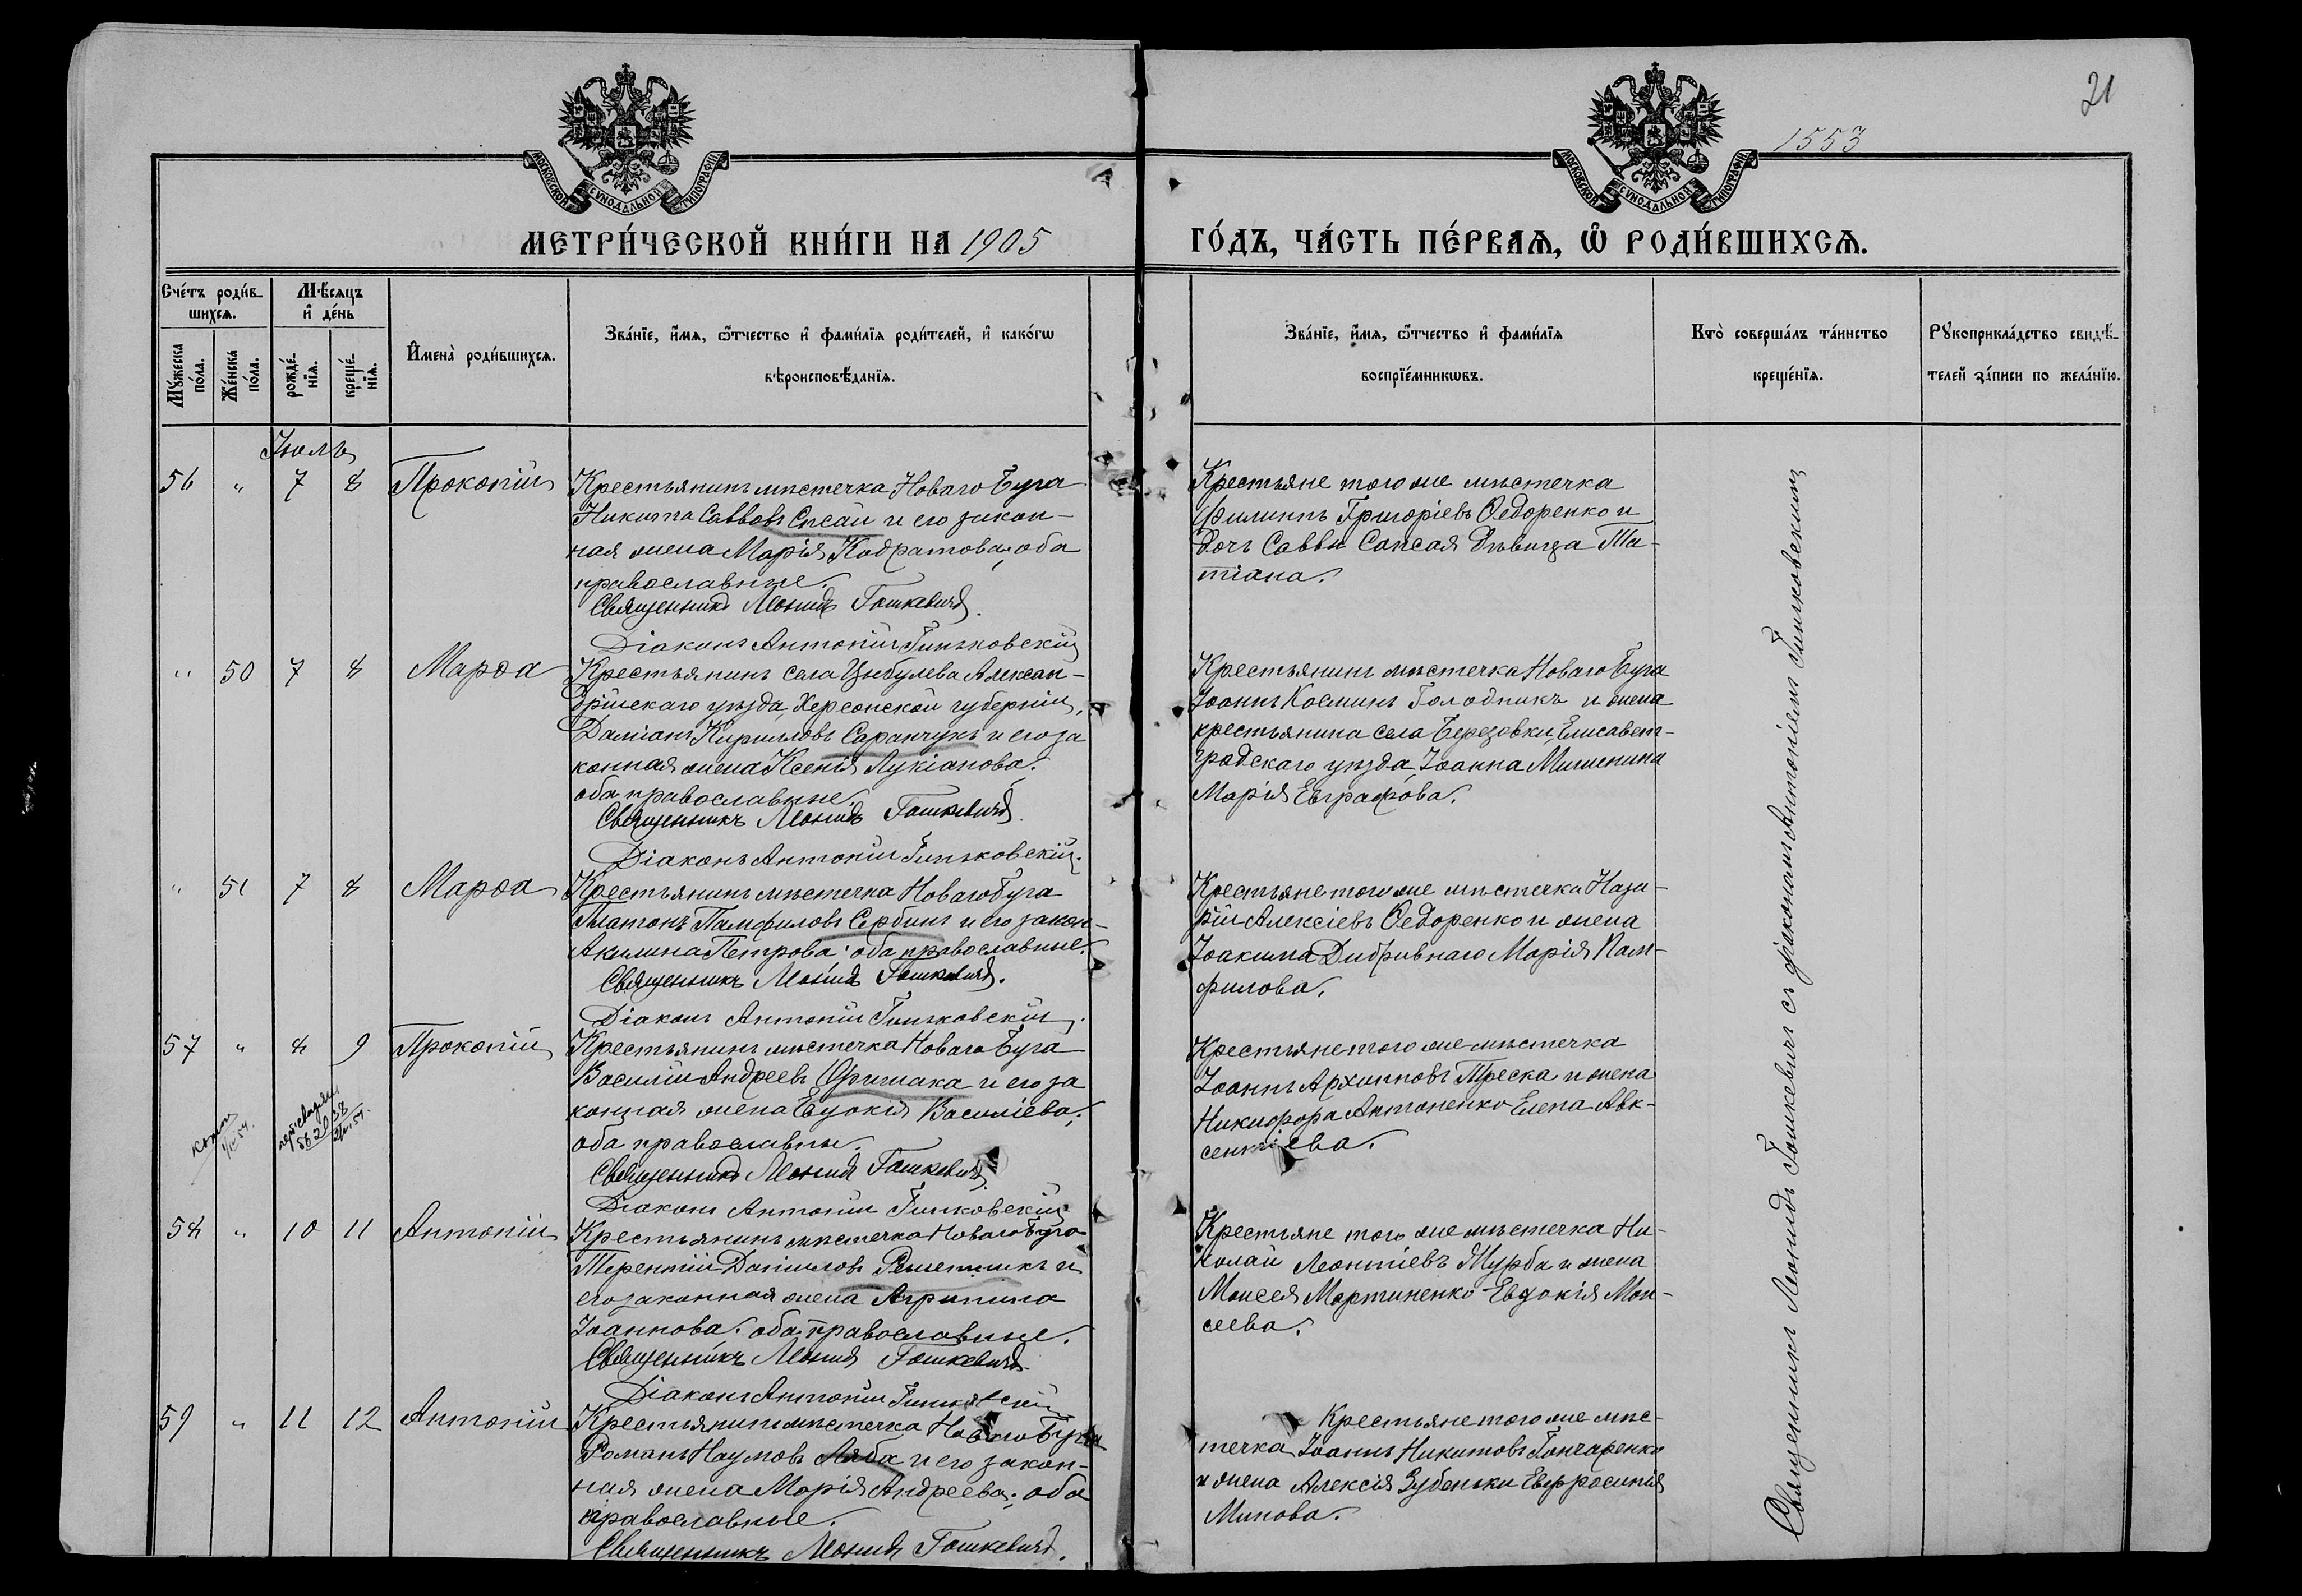 21
1553
МОСКОВСКОЙ СѴНОДАЛЬНОЙ ТИПОГРАФІИ
МОСКОВСКОЙ СѴНОДАЛЬНОЙ ТИПОГРАФІИ
МЕТРИ́ЧЕСКОЙ КНИ́ГИ НА 1905
ГО́ДЪ, ЧА́СТЬ ПЕ́РВАѦ, Ѡ҆ РОДИ́ВШИХСѦ.
Сче́тъ роди́в-
шихсѧ.
Мѣ́сѧцъ
и҆ де́нь
Мꙋ́жеска
по́ла.
Же́нска
по́ла.
рожде́-
нїѧ.
креще́-
нїѧ.
И҆мена̀ роди́вшихсѧ.
Зва́нїе, и҆́мѧ, ѻ҆́тчество и҆ фами́лїѧ роди́телей, и҆ како́гѡ
вѣроисповѣ́данїѧ.
Зва́нїе, и҆́мѧ, ѻ҆́тчество и҆ фами́лїѧ
воспрїе́мникѡвъ.
Кто̀ соверша́лъ та́инство
креще́нїѧ.
Рꙋкоприкла́дство свидѣ́-
телей за́писи по жела́нїю.
Іюль
56 " 7 8 Прокопій
Крестьянинъ мѣстечка Новаго Буга
Никита Саввовъ Сапсай и его закон-
ная жена Марія Кодратова, оба
православные.
Священникъ Леонидъ Гошкевичъ.
Діаконъ Антоній Гинжковскій
Крестьяне того же мѣстечка
Филиппъ Григоріевъ Ѳедоренко и
дочь Саввы Сапсая дѣвица Та-
тіана.
" 50 7 8 Марѳа
Крестьянинъ села Цыбулева Алексан-
дрійскаго уѣзда, Херсонской губерніи,
Даміанъ Кирилловъ Саранчукъ и его за
конная жена Ксенія Лукіанова.
оба православные.
Священникъ Леонидъ Гошкевичъ.
Діаконъ Антоній Гинжковскій.
Крестьянинъ мѣстечка Новаго Буга
Іоаннъ Косминъ Голодникъ и жена
крестьянина села Березовки, Елисавет-
градскаго уѣзда Іоанна Мишенина
Марія Евграфова.
" 51 7 8 Марѳа
Крестьянинъ мѣстечка Новаго Буга
Платонъ Памфиловъ Сербинъ и его закон-
Акилина Петрова; оба православные.
Священникъ Леонидъ Гошкевичъ.
Діаконъ Антоній Гинжковскій.
Крестьяне того же мѣстечка Наза-
рій Алексіевъ Ѳедоренко и жена
Іоакима Дибривнаго Марія Пам-
филова.
57 " 8 9 Прокопій
Крестьянинъ мѣстечка Новаго Буга
Василій Андреевъ и его за
конная жена Евдокія Василіева;
оба православны.
Священникъ Леонидъ Гошкевичъ.
Діаконъ Антоній Гинжковскій
Крестьяне того же мѣстечка
Іоаннъ Архипповъ Треска и жена
Никифора Антоненко Елена Авк-
сентіева.
58 " 10 11 Антоній
Крестьянинъ мѣстечка Новаго Буга
Терентій Даніиловъ Решетникъ и
его законная жена Агрипина
Іоаннова; оба православные.
Священникъ Леонидъ Гошкевичъ.
Діаконъ Антоній Гинжковскій
Крестьяне того же мѣстечка Ни-
колай Леонтіевъ Мурба и жена
Моисея Мартиненко Евдокія Мои-
сеева.
59 " 11 12 Антоній
Крестьянинъ мѣстечка Новаго Буга
Романъ Наумовъ Ляба и его закон-
ная жена Марія Андреева; оба
православные.
Священникъ Леонидъ Гошкевичъ.
Крестьяне того же мѣс-
течка Іоаннъ Никитовъ Гончаренко
и жена Алексія Зубенки Евфросинія
Минова.
Священникъ Леонидъ Гошкевичъ съ діакономъ Антоніемъ Гинжковскимъ